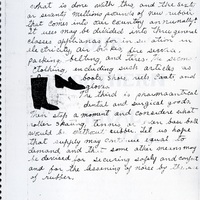 what is done with this and the rest
or seventy million pounds of rubber
that comes into our country annually?
It may be divided into three general
classes appliances for
electricity air brakes fire service,
packing, belting and tires.
clothing, including such articles as
boots, shoes, nets, Coats, and
gloves.
The third is pharmaceutical
dental and surgical goods.
Just stop a moment and consider what
roller skating, tennis or even ball
would be without rubber. Let us hope
that supply may continue equal to
demand and that some other means may
be devised for securing safety and comfort
and for the lessening of noise by the use
of rubber.